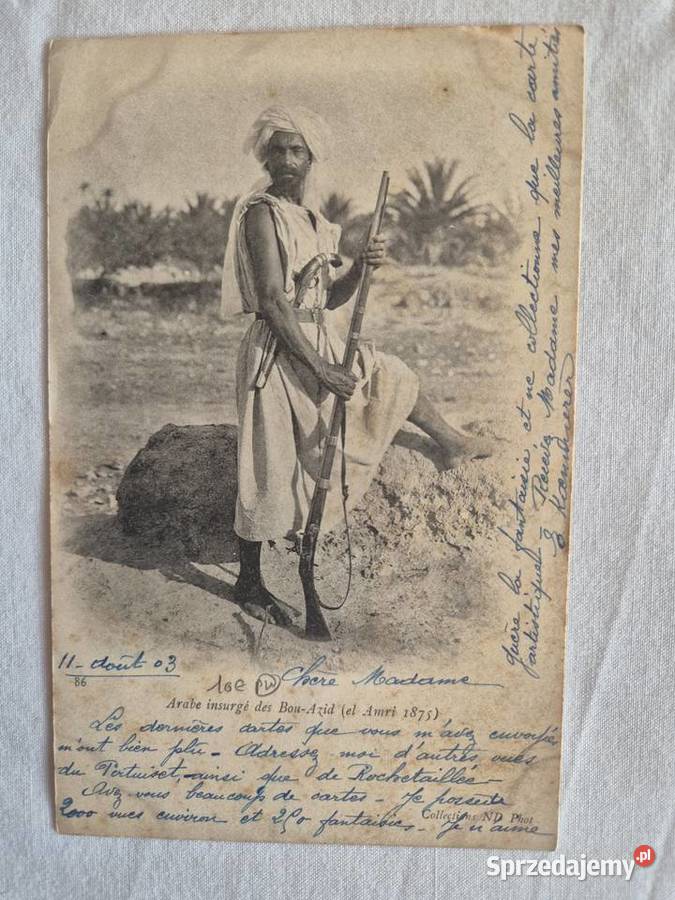 11 - août 03
86
10e PW Chère Madame
Arabe insurgé des Bou-Azid (el Amri 1875)
Les dernières cartes que vous m'avez envoyées
m'ont bien plu - Adressez-moi d'autres vues
du Pertuiset, ainsi que de Rochetaillée -
Avez vous beaucoup de cartes - Je possède
Collections ND Phot
2000 vues environ et 250 fantaisies - Je n'aime
guère la fantaisie, et ne collectionne que la carte
artistique. Recevez Madame mes meilleures amitiés
Kammerer
Sprzedajemy.pl